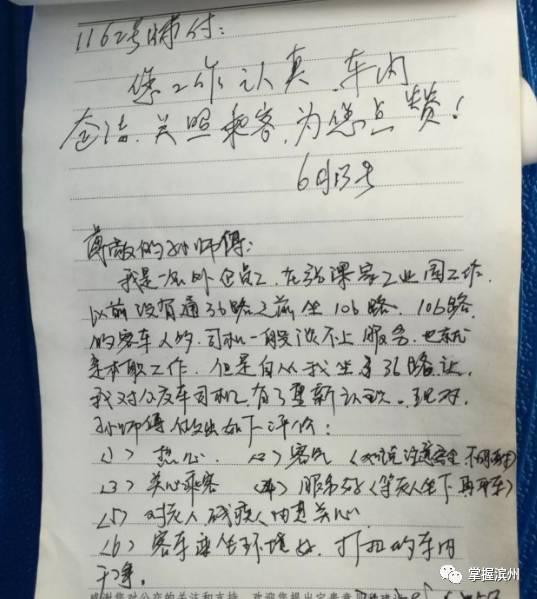 1162号师付:
您工作认真、车内
整洁、关照乘客,为您点赞!
6月13号
尊敬的孙师傅:
我是一名外仓员工、在 工业园工作、
以前没有通36路之前坐106路、106路
的客车人的、司机一般谈不上服务、也就
是本职工作、但是自从我坐了36路、让
我对公交车司机、有了重新认识。现对
孙师傅做出如下评价:
(1) 热心、 (2) 客气 (
(3) 关心乘客 (4) 服务好(等老人坐下再开车)
(5) 对老人、残疾人 关心
(6) 客车 环境好、打扫的车内
干净。
感谢您对公交的关注和支持、欢迎您提出宝贵意见
掌握滨州